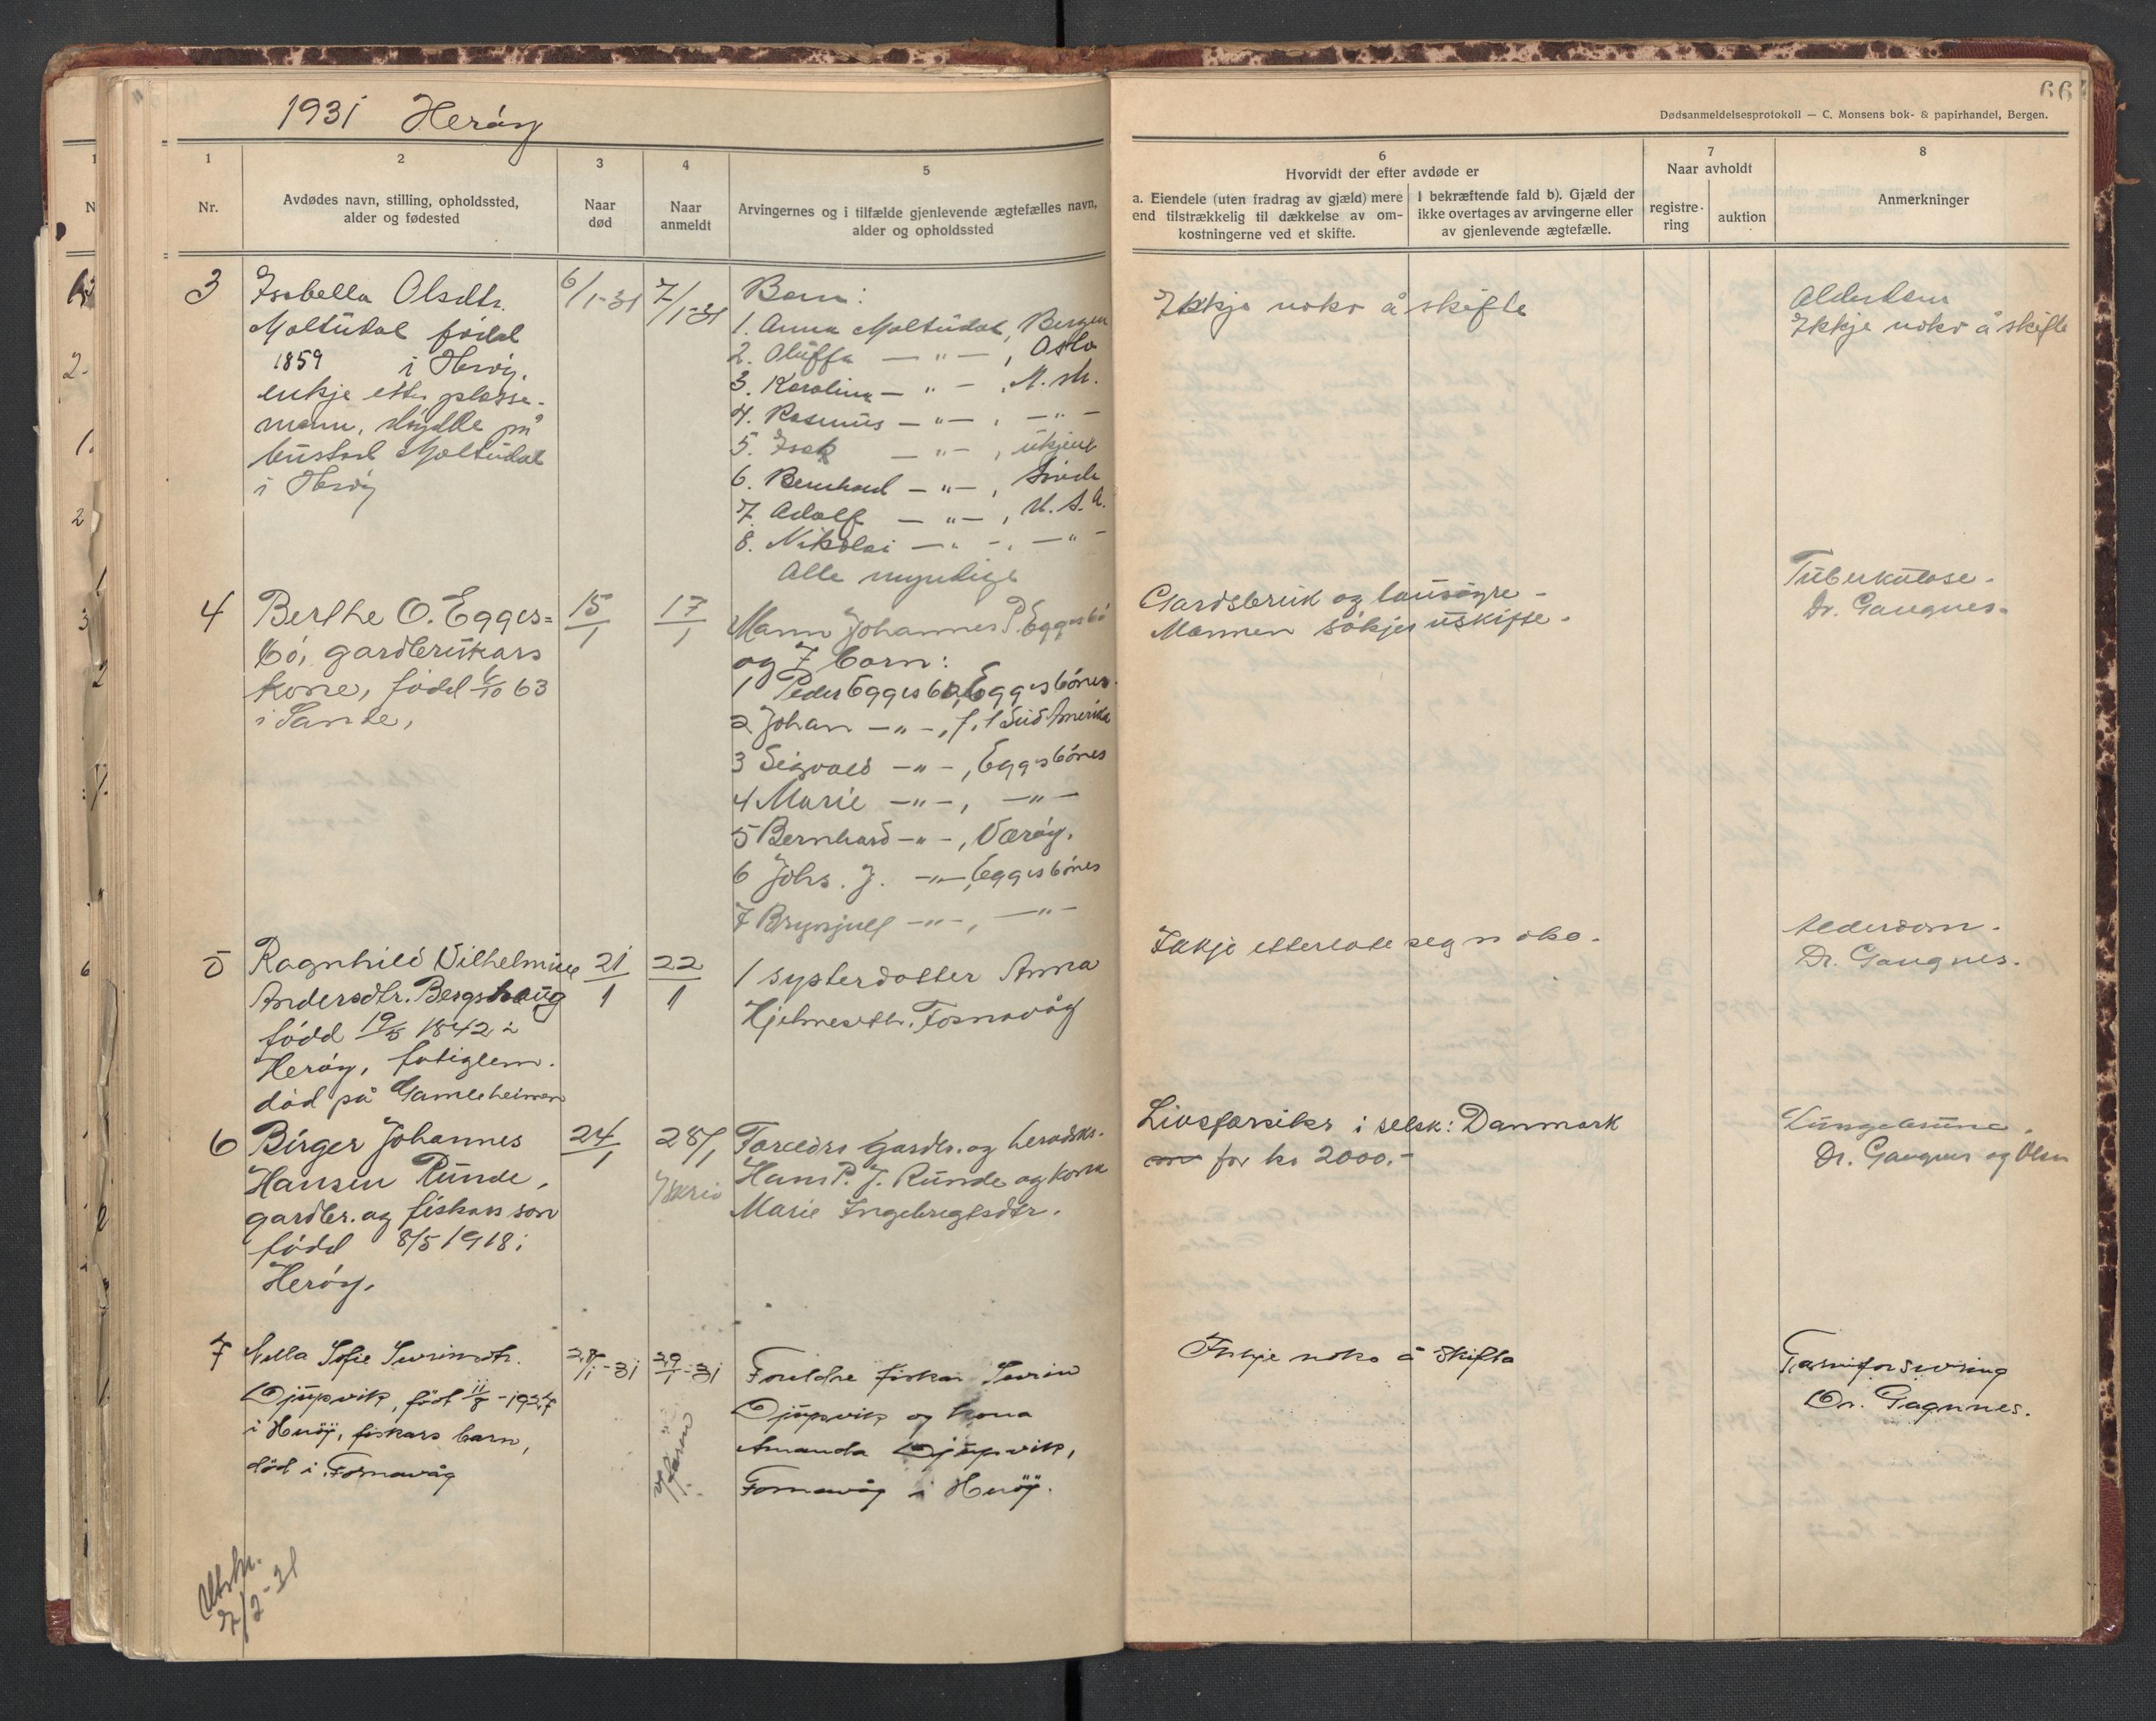 1931 Herøy
66
Dødsanmeldelsesprotokoll — C. Monsens bok- & papirhandel, Bergen.
1
Nr.
2
Avdødes navn, stilling, opholdssted,
alder og fødested
3
Naar
død
4
Naar
anmeldt
5
Arvingernes og i tilfælde gjenlevende ægtefælles navn,
alder og opholdssted
6
Hvorvidt der efter avdøde er
a. Eiendele (uten fradrag av gjæld) mere
end tilstrækkelig til dækkelse av om-
kostningerne ved et skifte.
I bekræftende fald b). Gjæld der
ikke overtages av arvingerne eller
av gjenlevende ægtefælle.
7
Naar avholdt
registre-
ring
auktion
8
Anmerkninger
3
Isabella Olsdtr.
Moltudal född
1859 i Herøy.
enkje etter plasse-
mann, på
bustad Moltudal
i Herøy
6/1-31
7/1-31
Born:
1. Anna Moltudal, Bergen
2. Oluffa — " — , Oslo
3. Karolina — " — , M. st.
4. Rasmus — " — , — " —
5. Isak — " — , ukjent
6. Bernhard — " — ,
7. Adolf — " — , U.S.A.
8. Nikolai — " — , — " —
Alle myndige
Ikkje noko å skifte
Alderdom
Ikkje noko å skifte
4
Berthe O. Eggis=
bö, gardbrukars
kone, född 6/10 63
i Sande,
15/1
17/1
Mann Johannes P. Eggesbö
og 7 born:
1 Peder Eggesbö, Eggesbönes
2 Johan — " — , f. t. Süd Amerika
3 Sigvald — " — , Eggesbönes
4 Marie — " — , — " —
5 Bernhard — " — , Værøy.
6 Johs. J. — " — , Eggesbönes
7 Brynjulf — " — , — " —
Gardsbruk og lausøyre -
Mannen søkjer uskifte.
Tuberkulose.
Dr. Gaugnes.
5
Ragnhild Vilhelmine
Andersdtr. Bergshaug
född 19/5 1842 i
Herøy, fatiglem.
död på Gamleheimen
21/1
22/1
1 systerdotter Anna
Hjelmeseth. Fosnavåg
Ikkje etterlate seg noko.
Alderdom.
Dr. Gaugnes.
6
Birger Johannes
Hansen Runde,
gardbr. og fiskars son
född 8/5 1918 i
Herøy.
24/1
28/1
Foreldre Gardbr. og
Hans P. J. Runde og kona
Marie Ingebregtsdtr.
Livsforsikr i selsk: Danmark
for kr 2000.-
Dr. Gaugnes og Olsen
7
Nella Sofie Severinsdtr.
Djupvik, født 11/8 - 1927
i Herøy, fiskars barn,
död i Fosnavåg
28/1-31
29/1-31
Foreldre fiskar Severin
Djupvik og kona
Amanda Djupvik,
Fosnavåg i Herøy.
Inkje noko å skifta
Dr. Gagnnes.
Utskr.
7/2-31